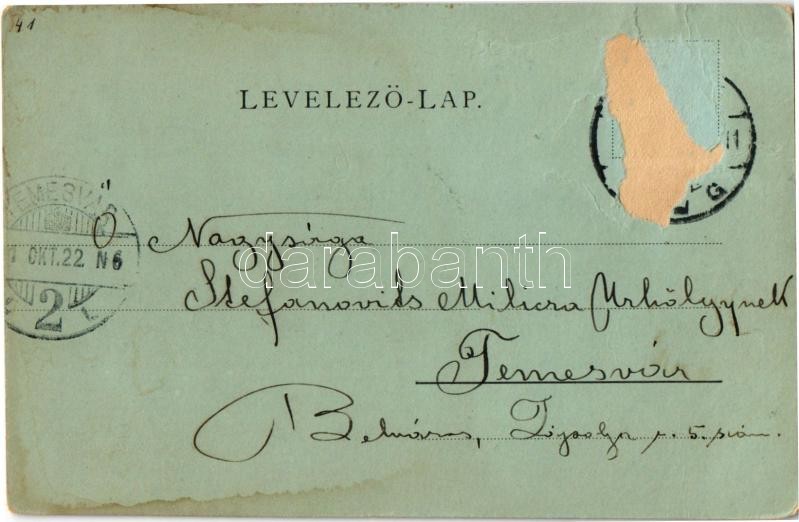 41
LEVELEZÖ-LAP.
TEMESVÁR
OKT. 22. N6
2
Ő Nagysága
Stefanovits Milicza Urhölgynek
Temesvár
Belváros, 5. szám.
darabanth